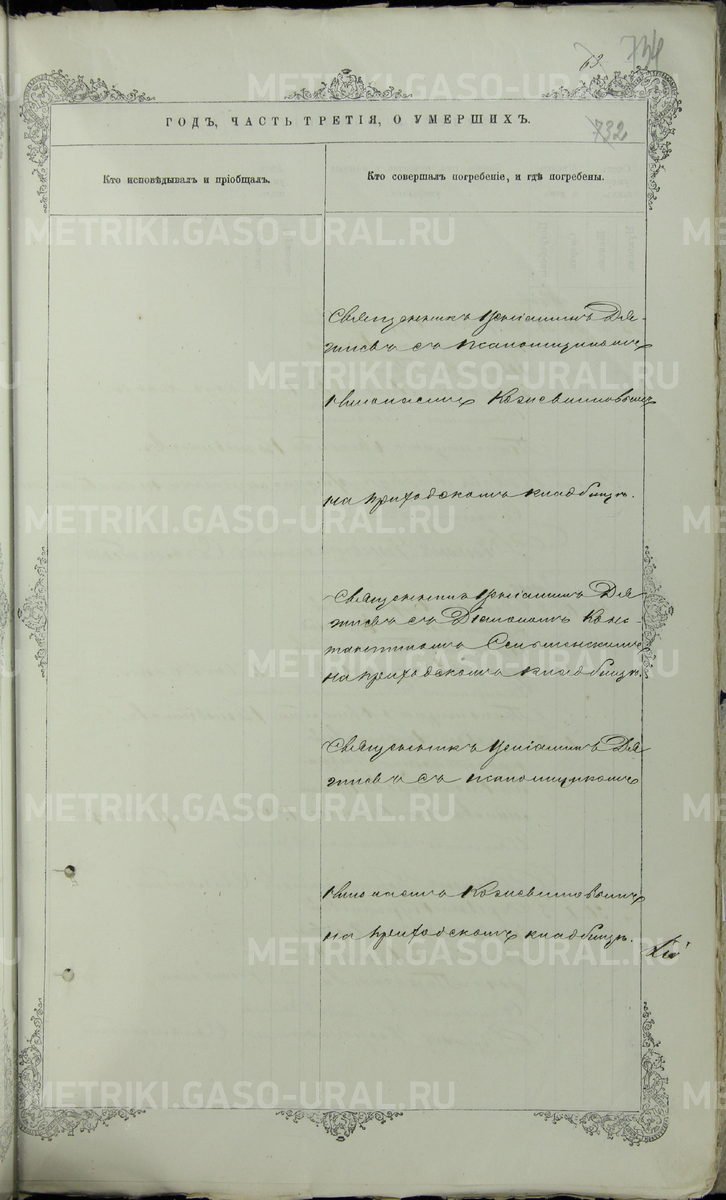 734
732
ГОДЪ, ЧАСТЬ ТРЕТІЯ, О УМЕРШИХЪ.
Кто исповѣдывалъ и пріобщалъ.
Кто совершалъ погребеніе, и гдѣ погребены.
Священникъ Веніаминъ Дя-
гилевъ съ псаломщикомъ
на приходскомъ кладбищѣ.
Священникъ Веніаминъ Дя
гилевъ съ Діакономъ Конс-
тантиномъ
на приходскомъ кладбищѣ.
Священникъ Веніаминъ Дя
гилевъ съ псаломщикомъ
на приходскомъ кладбищѣ.
METRIKI.GASO-URAL.RU